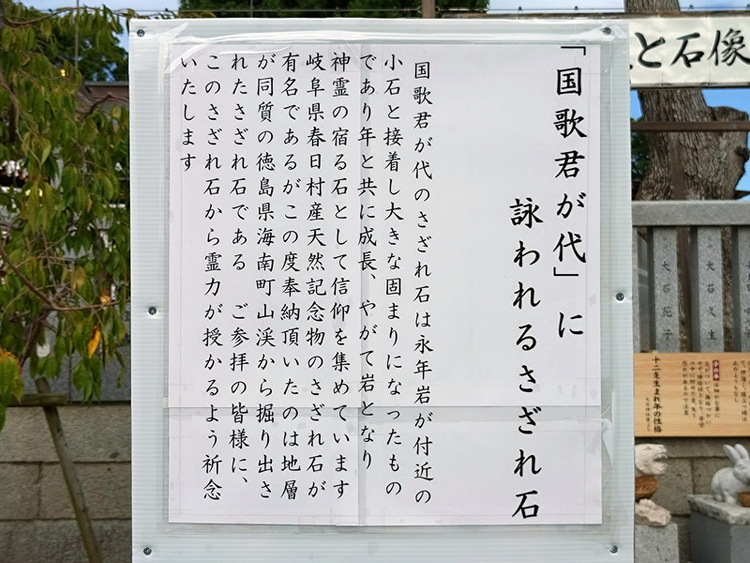 「国歌君が代」に
詠われるさざれ石
国歌君が代のさざれ石は永年岩が付近の
小石と接着し大きな固まりになったもの
であり年と共に成長、やがて岩となり
神霊の宿る石として信仰を集めています
岐阜県春日村産天然記念物のさざれ石が
有名であるがこの度奉納頂いたのは地層
が同質の徳島県海南町山渓から掘り出さ
れたさざれ石である　ご参拝の皆様に、
このさざれ石から霊力が授かるよう祈念
いたします
と石像
大石久生
大石花子
十二支生まれ年の性格